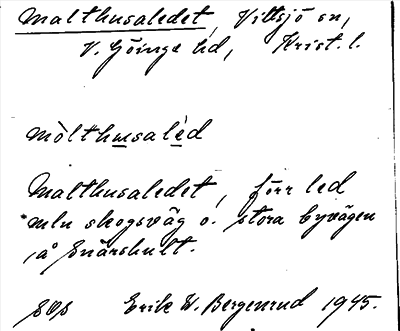 Malthusaledet, Vittsjö sn,
V. Göinge hd, Krist. l.
mòlthusalèd
Malthusaledet, förr led
mln skogsväg o. stora byvägen
på Snärshult.
Erik W. Bergenrud 1945.